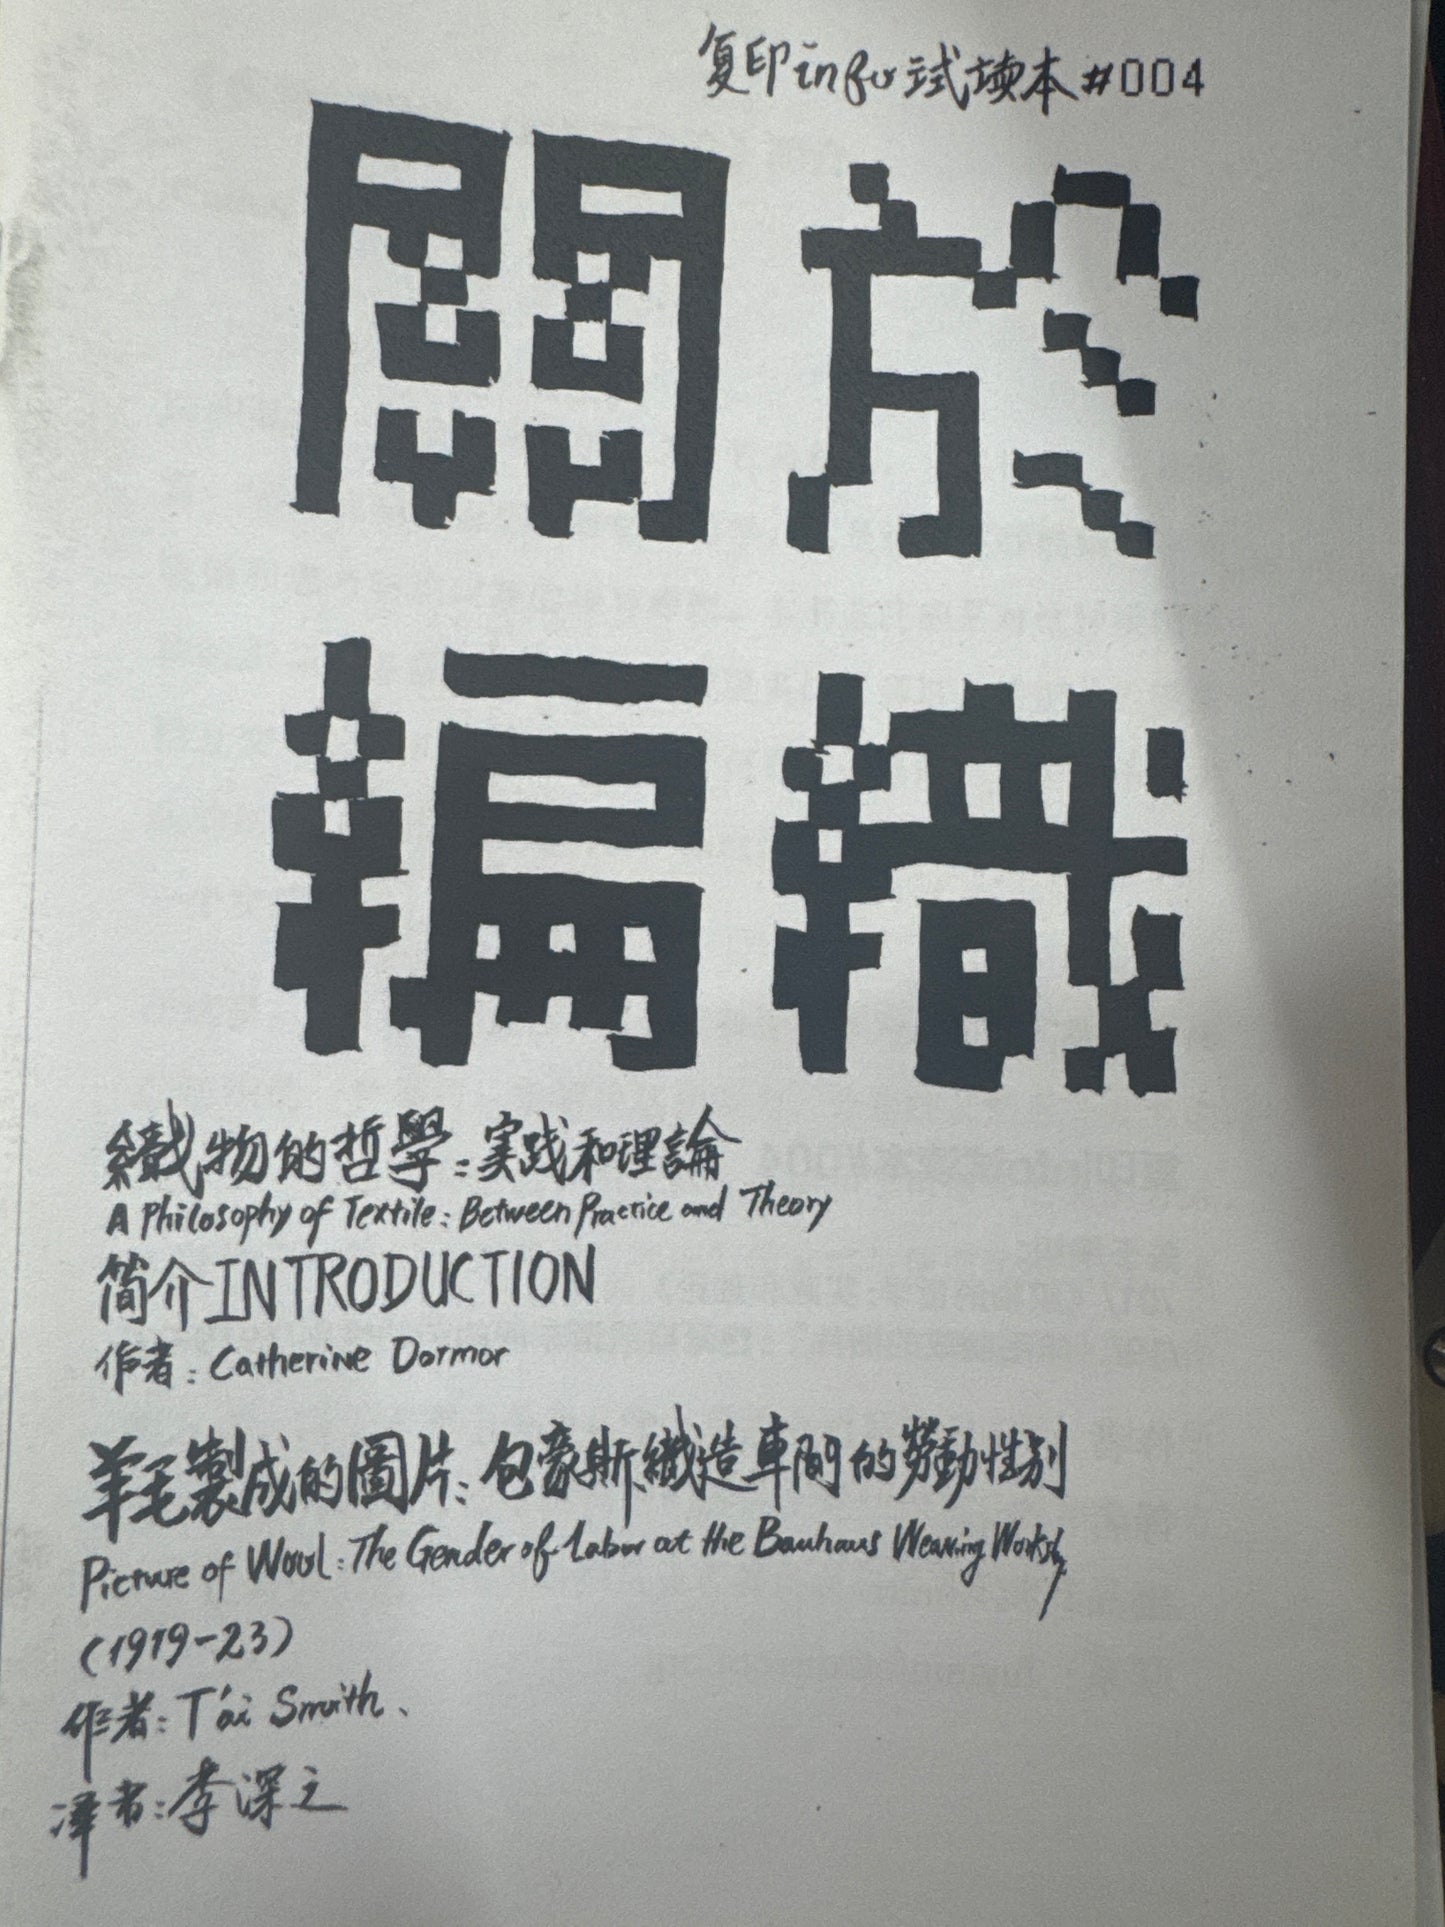 复印infu试读本#004
關於
編織
織物的哲學:実践和理論
A Philosophy of Textile: Between Practice and Theory
简介INTRODUCTION
作者: Catherine Dormor
羊毛製成的圖片: 包豪斯織造車間的勞動性別
Picture of Wool: The Gender of Labor at the Bauhaus Weaving Workshop
(1919-23)
作者: T'ai Smith.
译者: 李深之